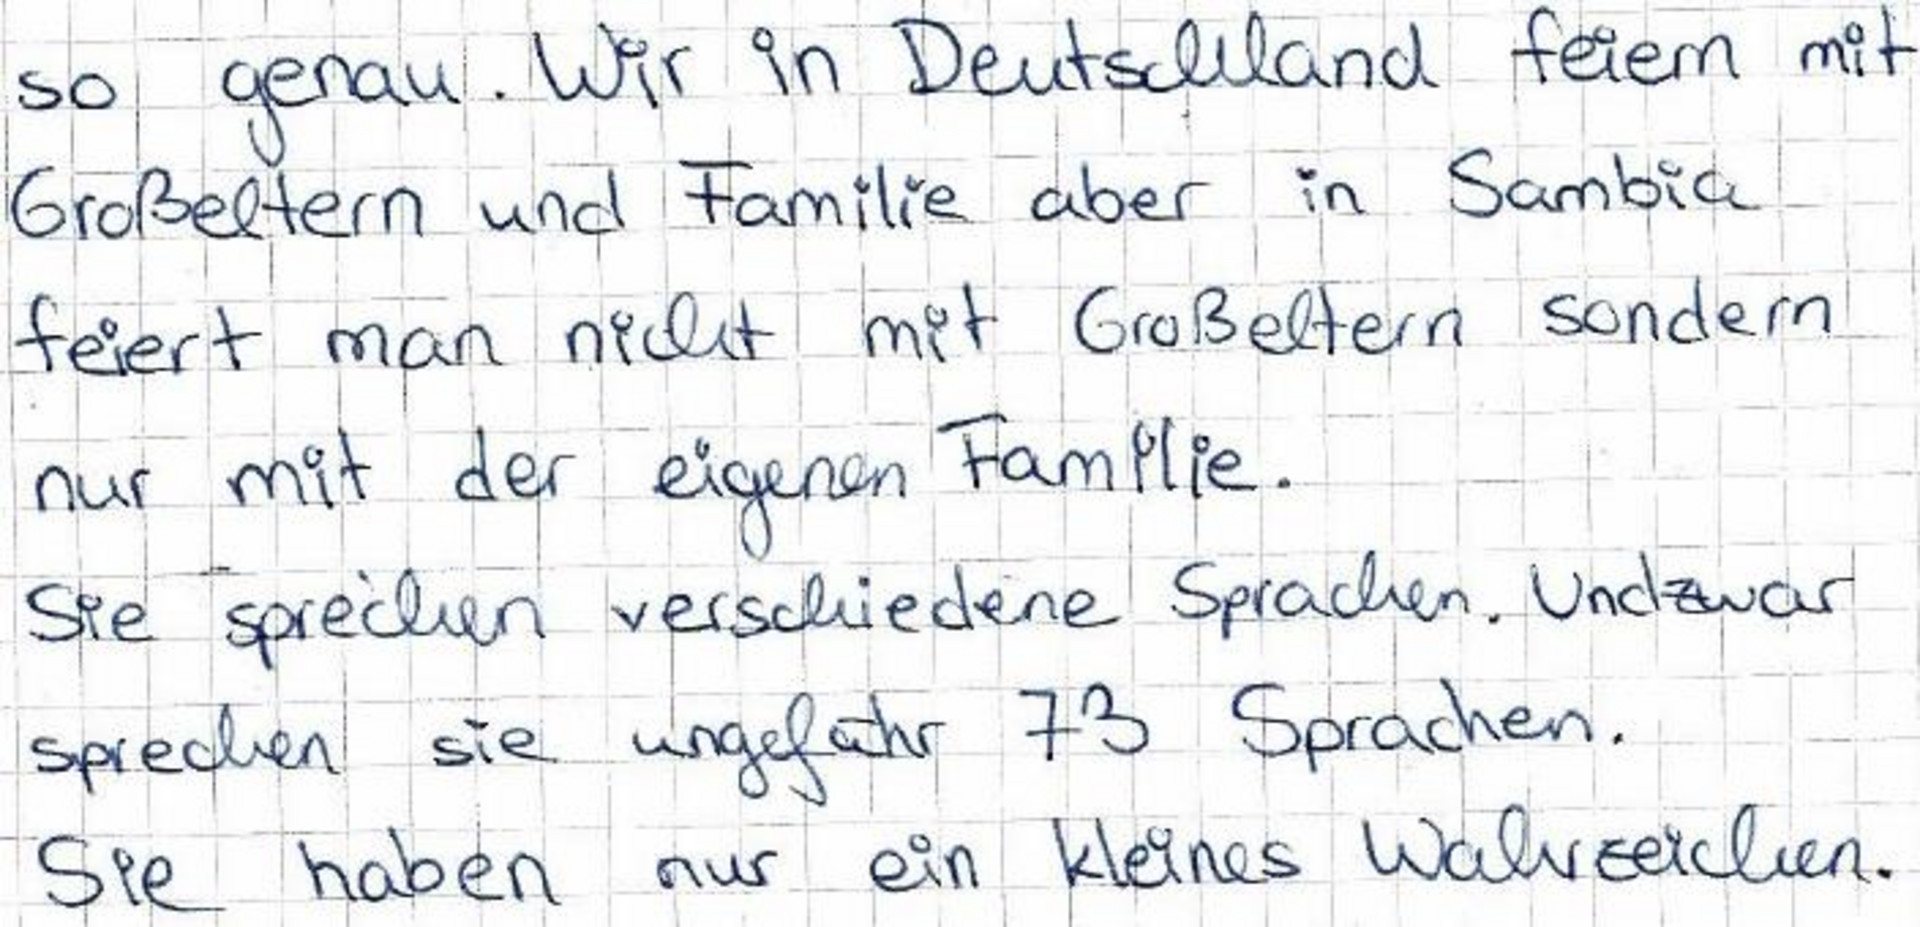 so genau. Wir in Deutschland feiern mit
Großeltern und Familie aber in Sambia
feiert man nicht mit Großeltern sondern
nur mit der eigenen Familie.
Sie sprechen verschiedene Sprachen. Undzwar
sprechen sie ungefähr 73 Sprachen.
Sie haben nur ein kleines Wahrzeichen.